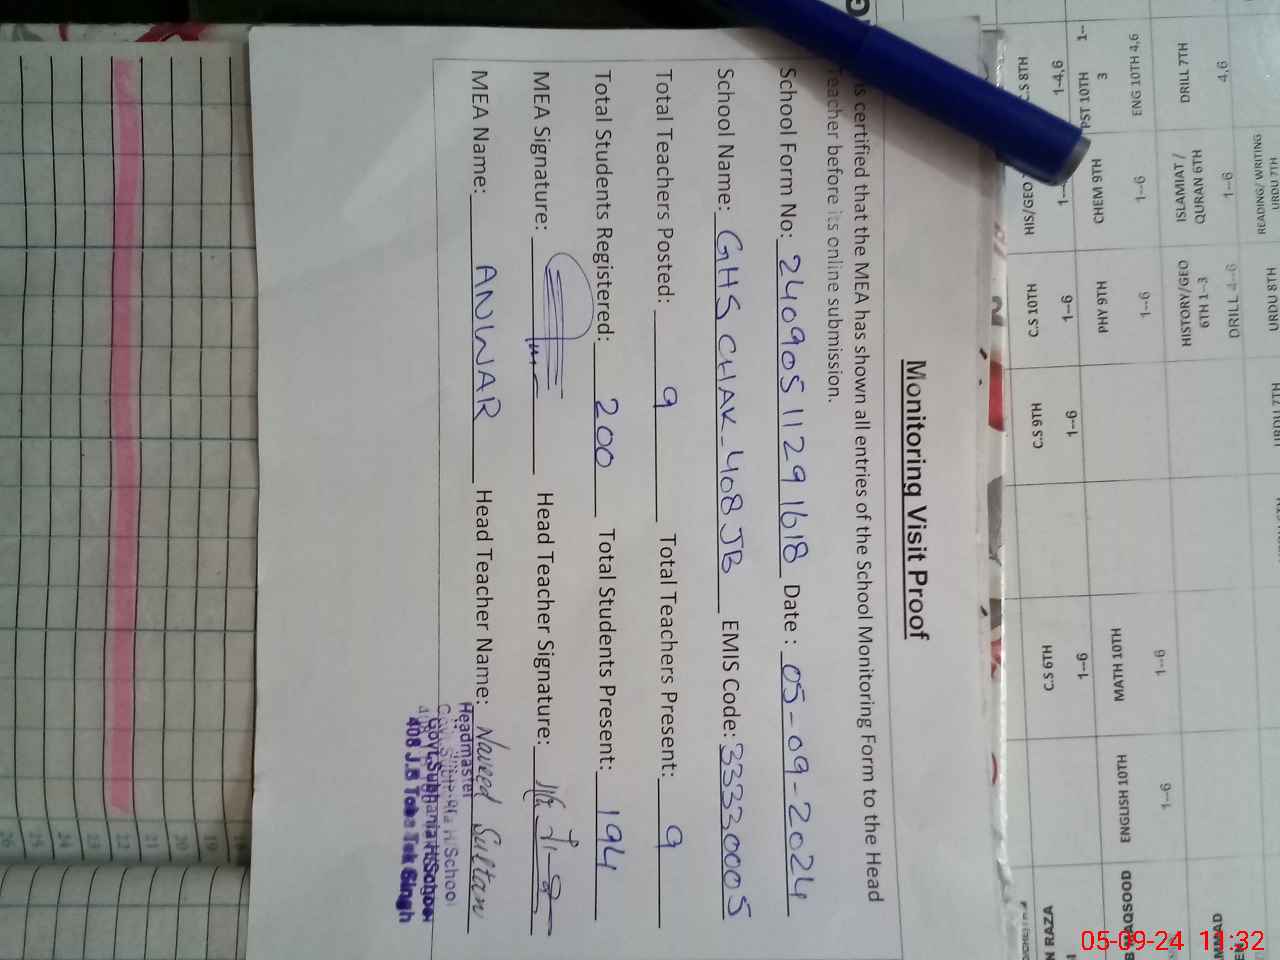 Monitoring Visit Proof
is certified that the MEA has shown all entries of the School Monitoring Form to the Head
Teacher before its online submission.
School Form No: 2409051129 1618 Date : 05-09-2024
School Name: GHS CHAK-408 JB EMIS Code: 33330005
Total Teachers Posted: 9 Total Teachers Present: 9
Total Students Registered: 200 Total Students Present: 194
MEA Signature: Head Teacher Signature:
MEA Name: ANWAR Head Teacher Name: Naveed Sultan
Headmaster
Govt.Subhania H/School
408 J.B Toba Tek Singh
C.S 8TH
1–4,6
PST 10TH
1–3
ENG 10TH 4,6
DRILL 7TH
4,6
HIS/GEO
CHEM 9TH
1–6
ISLAMIAT/
QURAN 6TH
1–6
READING/WRITING
URDU 7TH
C.S 10TH
1–6
PHY 9TH
1–6
HISTORY/GEO
6TH 1–3
DRILL 4–6
URDU 8TH
C.S 9TH
1–6
C.S 6TH
1–6
MATH 10TH
1–6
ENGLISH 10TH
1–6
N RAZA
MAQSOOD
26
25
24
23
22
21
20
19
05-09-24 11:32